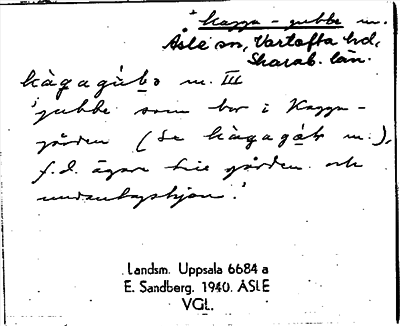 + kagga-gubbe m.
Åsle sn, Vartofta hd,
Skarab. län.
kàgagùbə m. III
'gubbe som bor i Kagga-
gården (se kàgagål m.),
f.d. ägare till gården och
undantagshjon.'
Landsm. Uppsala 6684 a
E. Sandberg. 1940. ÅSLE
VGL.